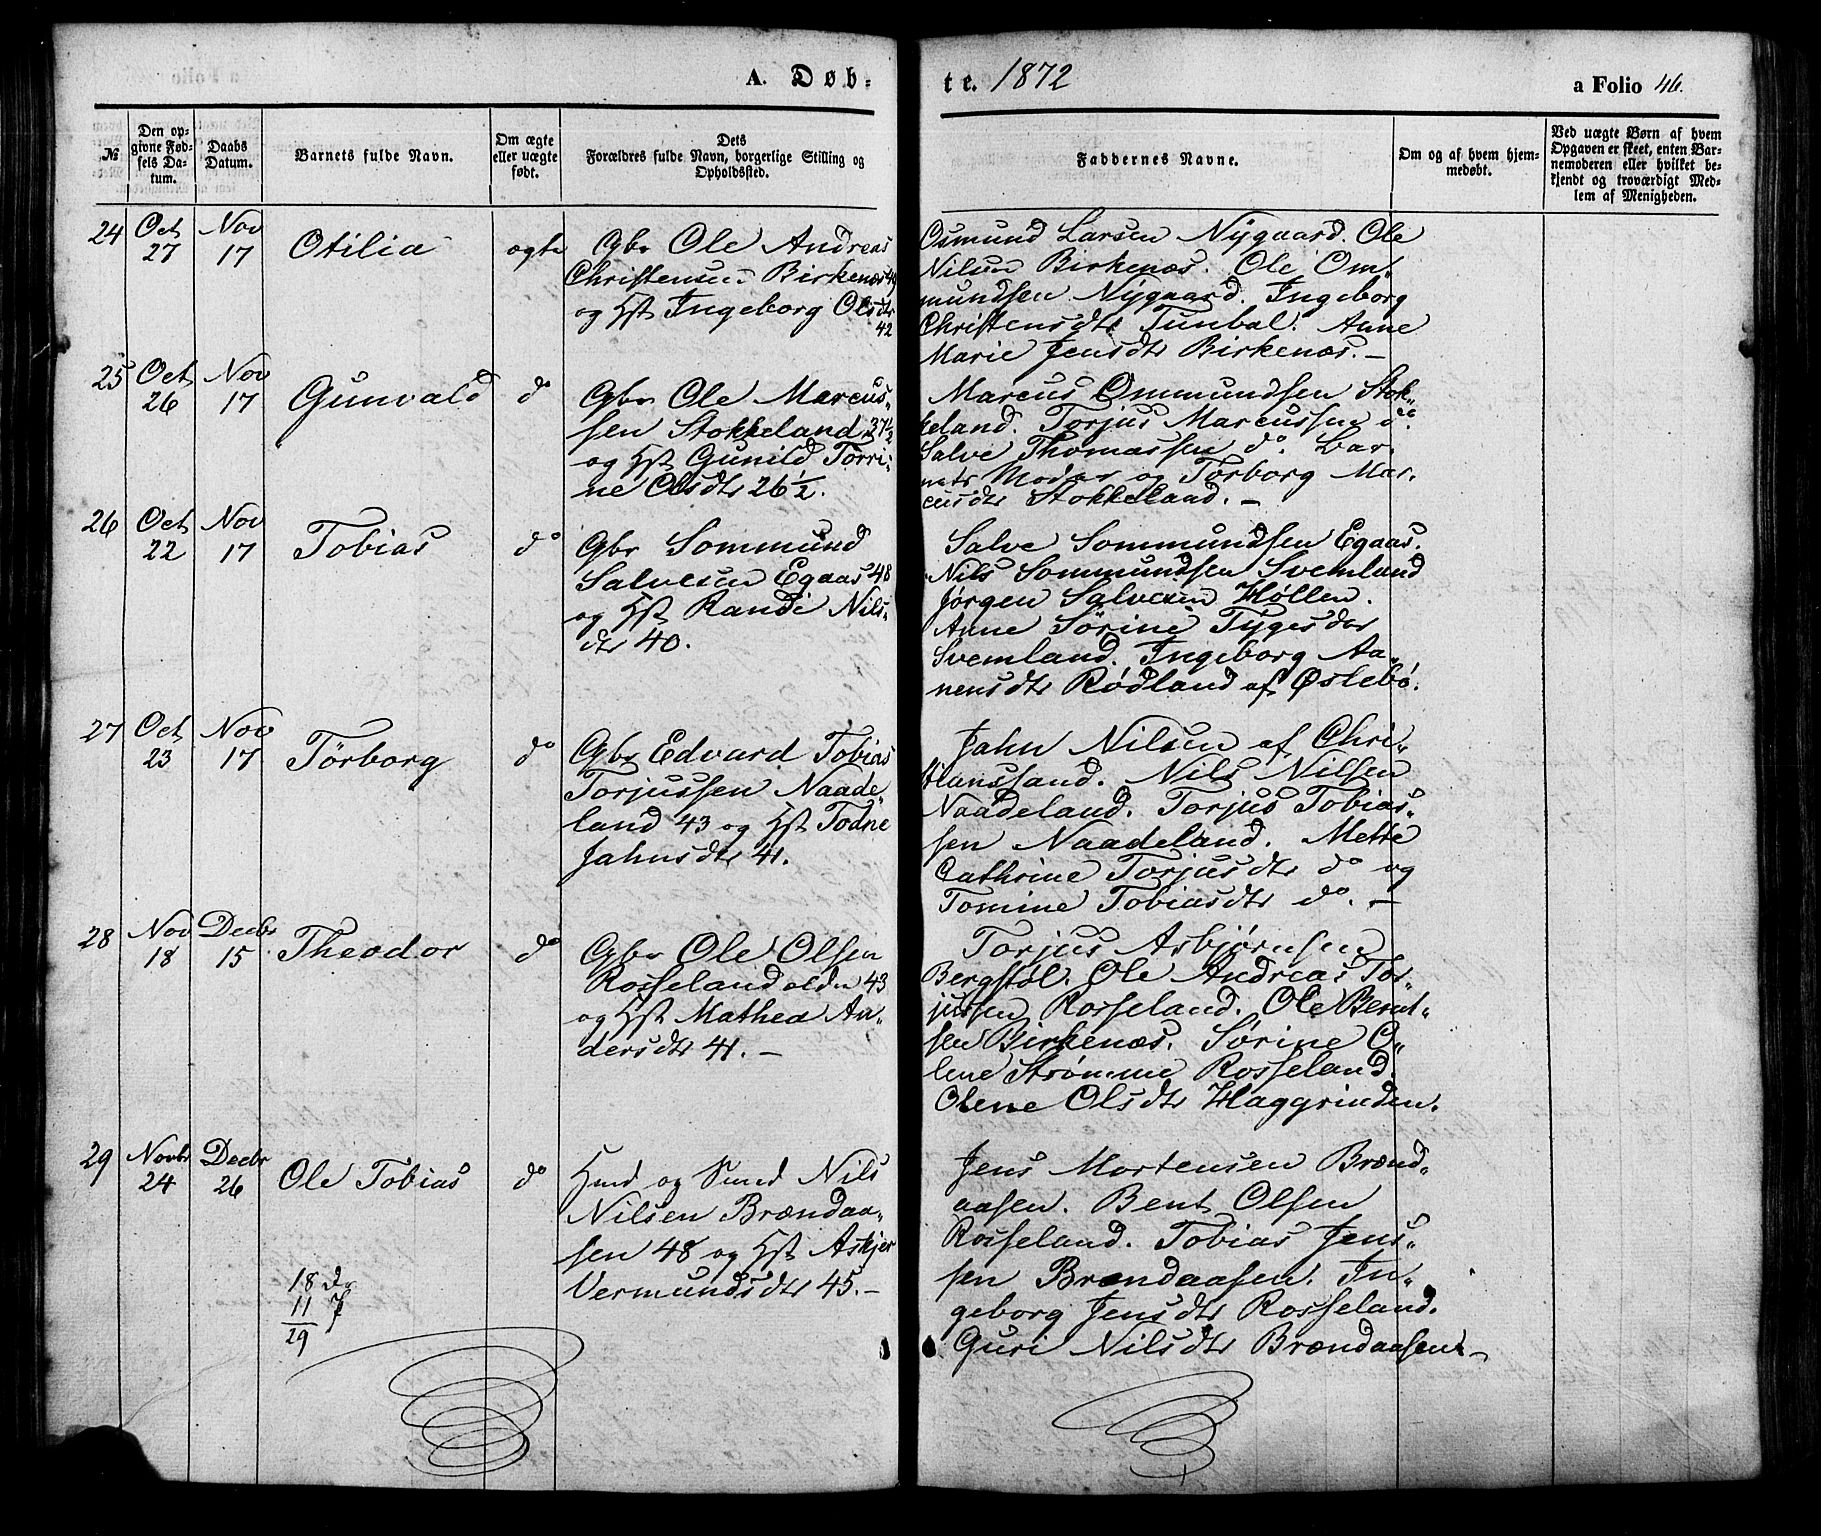 A. Døb-
te. 1872
a Folio 46.
№
Den op-
givne Fød-
sels Da-
tum.
Daabs
Datum.
Barnets fulde Navn.
Om ægte
eller uægte
født.
Dets
Forældres fulde Navn, borgerlige Stilling og
Opholdssted.
Faddernes Navne.
Om og af hvem hjem-
medøbt.
Ved uægte Børn af hvem
Opgaven er skeet, enten Bar-
nemoderen eller hvilket be-
kjendt og troværdigt Med-
lem af Menigheden.
24
Oct
27
Nov
17
Otilia
ægte
Gbr Ole Andreas
Christensen Birkenæs 49
og Hst Ingeborg Olsdtr
42
Osmund Larsen Nygaard. Ole
Nilsen Birkenæs. Ole Om-
mundsen Nygaard. Ingeborg
Christensdtr Tunbal. Anne
Marie Jensdtr Birkenæs. —
25
Oct
26
Nov
17
Gunvald
do
Gbr Ole Marcus-
sen Stokkeland 37½
og Hst Gunild Torri-
ne Olsdtr 26½.
Marcus Ommundsen Stok-
keland. Torjus Marcussen do.
Salve Thomassen do. Bar-
nets Moder og Torborg Mar-
cusdtr Stokkeland. —
26
Oct
22
Nov
17
Tobias
do
Gbr Sommund
Salvesen Egaas 48
og Hst Randi Nils-
dtr 40.
Salve Sommundsen Egaas.
Nils Sommundsen Svemland
Jørgen Salvesen Høllen.
Anne Sørine Tygesdtr
Svemland. Ingeborg Aa-
nensdtr Rødland af Øslebø.
27
Oct
23
Nov
17
Törborg
do
Gbr Edvard Tobias
Torjussen Naade-
land 43 og Hst Todne
Jahnsdtr 41.
Jahn Nilsen af Chri-
stianssand. Nils Nilsen
Naadeland. Torjus Tobias-
sen Naadeland. Mette
Cathrine Torjusdtr do og
Tomine Tobiasdtr do. —
28
Nov
18
Decbr
15
Theodor
do
Gbr Ole Olsen
Rosseland olden 43
og Hst Mathea An-
dersdtr 41. —
Torjus Asbjørnsen
Bergstøl. Ole Andreas Tor-
jussen Rosseland. Ole Bernt-
sen Birkenæs. Sørine O-
lene Strømme Rosseland.
Olene Olsdtr Haggrinden.
29
Novbr
24
Decbr
26
Ole Tobias
do
Hmd og Smed Nils
Nilsen Brændaa-
sen 48 og Hst Askjer
Vermundsdtr 45. —
Jens Mortensen Brænd-
aasen. Bent Olsen
Rosseland. Tobias Jens-
sen Brændaasen. In-
geborg Jensdtr Rosseland.
Guri Nilsdtr Brændaasen. —
18 Dr
11 P
29